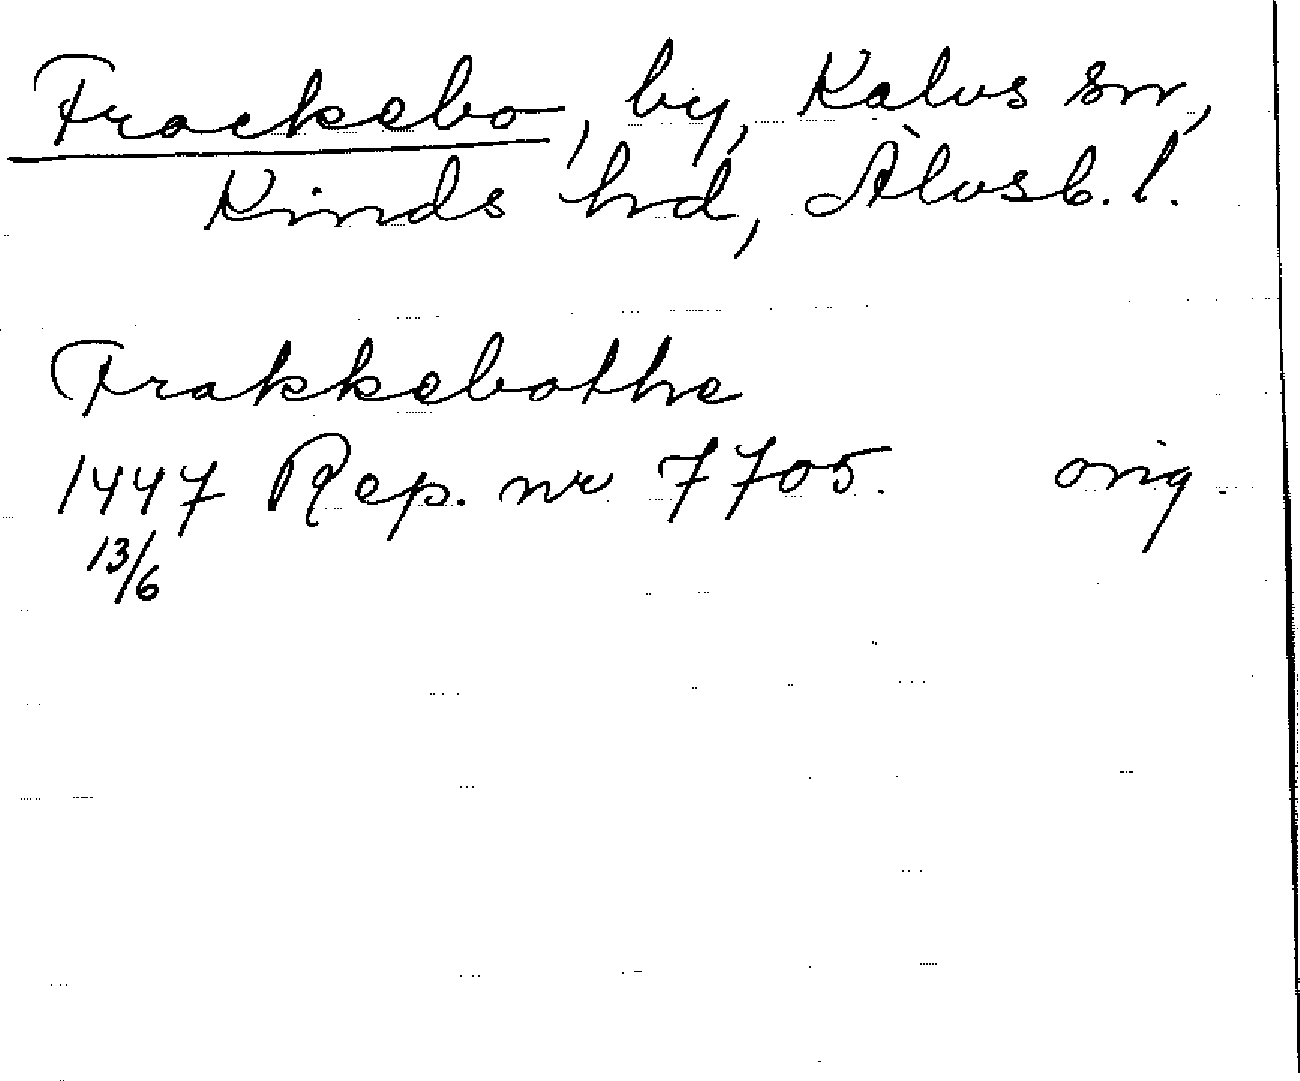 Frackebo, by, Kalvs sn,
Kinds hd, Älvsb. l.
Frakkebothe
1447 Rep. nr 7705. orig.
13/6